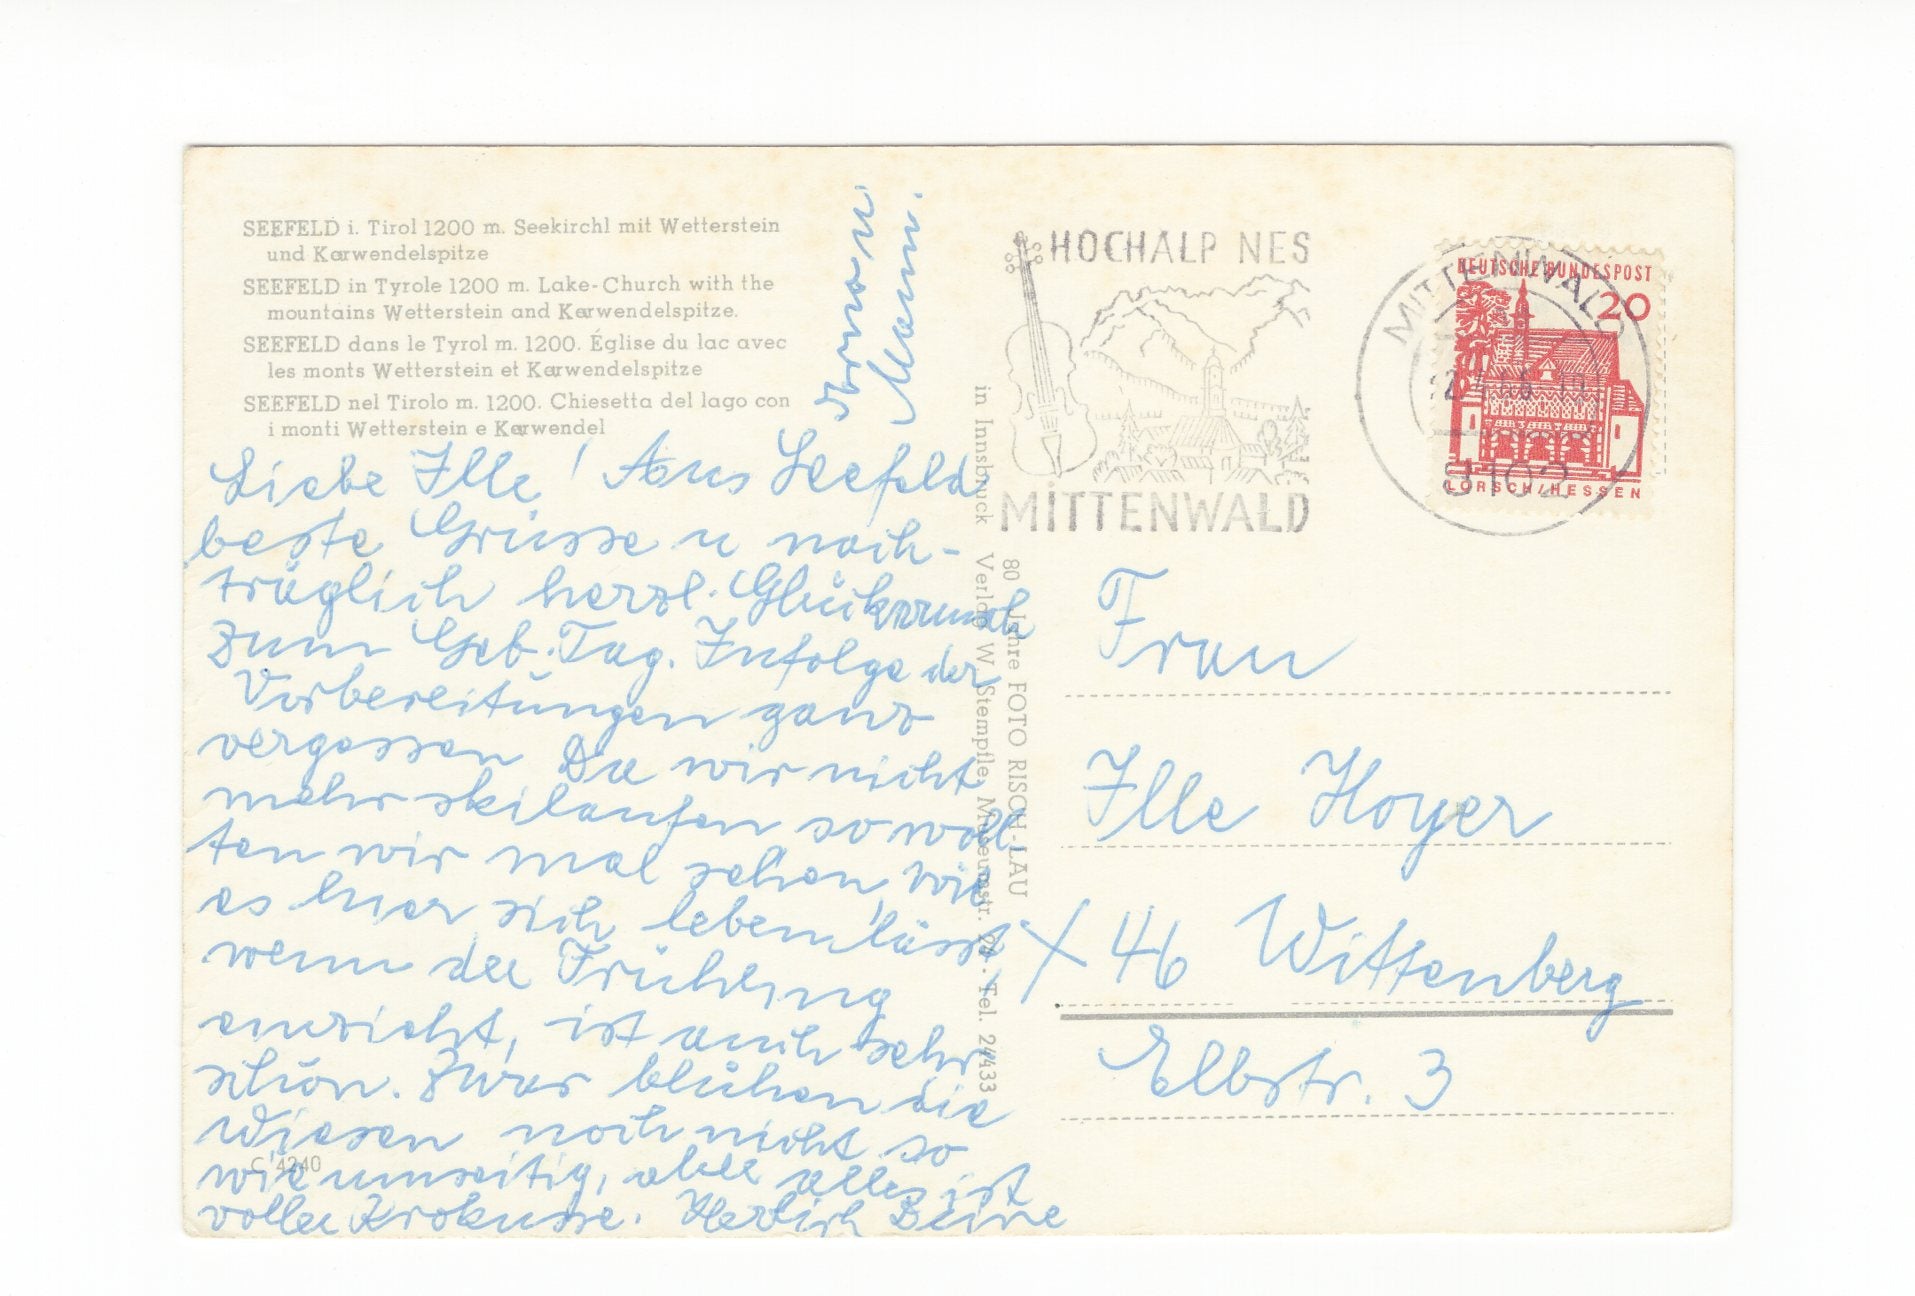 SEEFELD i. Tirol 1200 m. Seekirchl mit Wetterstein
und Karwendelspitze
SEEFELD in Tyrole 1200 m. Lake-Church with the
mountains Wetterstein and Karwendelspitze.
SEEFELD dans le Tyrol m. 1200. Église du lac avec
les monts Wetterstein et Karwendelspitze
SEEFELD nel Tirolo m. 1200. Chiesetta del lago con
i monti Wetterstein e Karwendel
Liebe Ille! Aus Seefeld
beste Grüsse u nach-
träglich herzl. Glückwunsch
zum Geb. Tag. Infolge der
Vorbereitungen ganz
vergessen Da wir nicht
mehr skilaufen so woll
ten wir mal sehen, wie
es hier sich leben lässt,
wenn der Frühling
einzieht, ist auch sehr
schön. Zwar blühen die
Wiesen noch nicht so
wie umseitig, aber alles ist
voller Krokusse. Herzlich Deine
u
Mann.
C 4240
80 Jahre FOTO RISCH-LAU
in Innsbruck Verlag W. Stempfle, Museumstr. 24. Tel. 24433
HOCHALP NES
MITTENWALD
MITTENWALD
8102
DEUTSCHE BUNDESPOST
20
LORSCH/HESSEN
Frau
Ille Hoyer
X 46 Wittenberg
Elbstr. 3